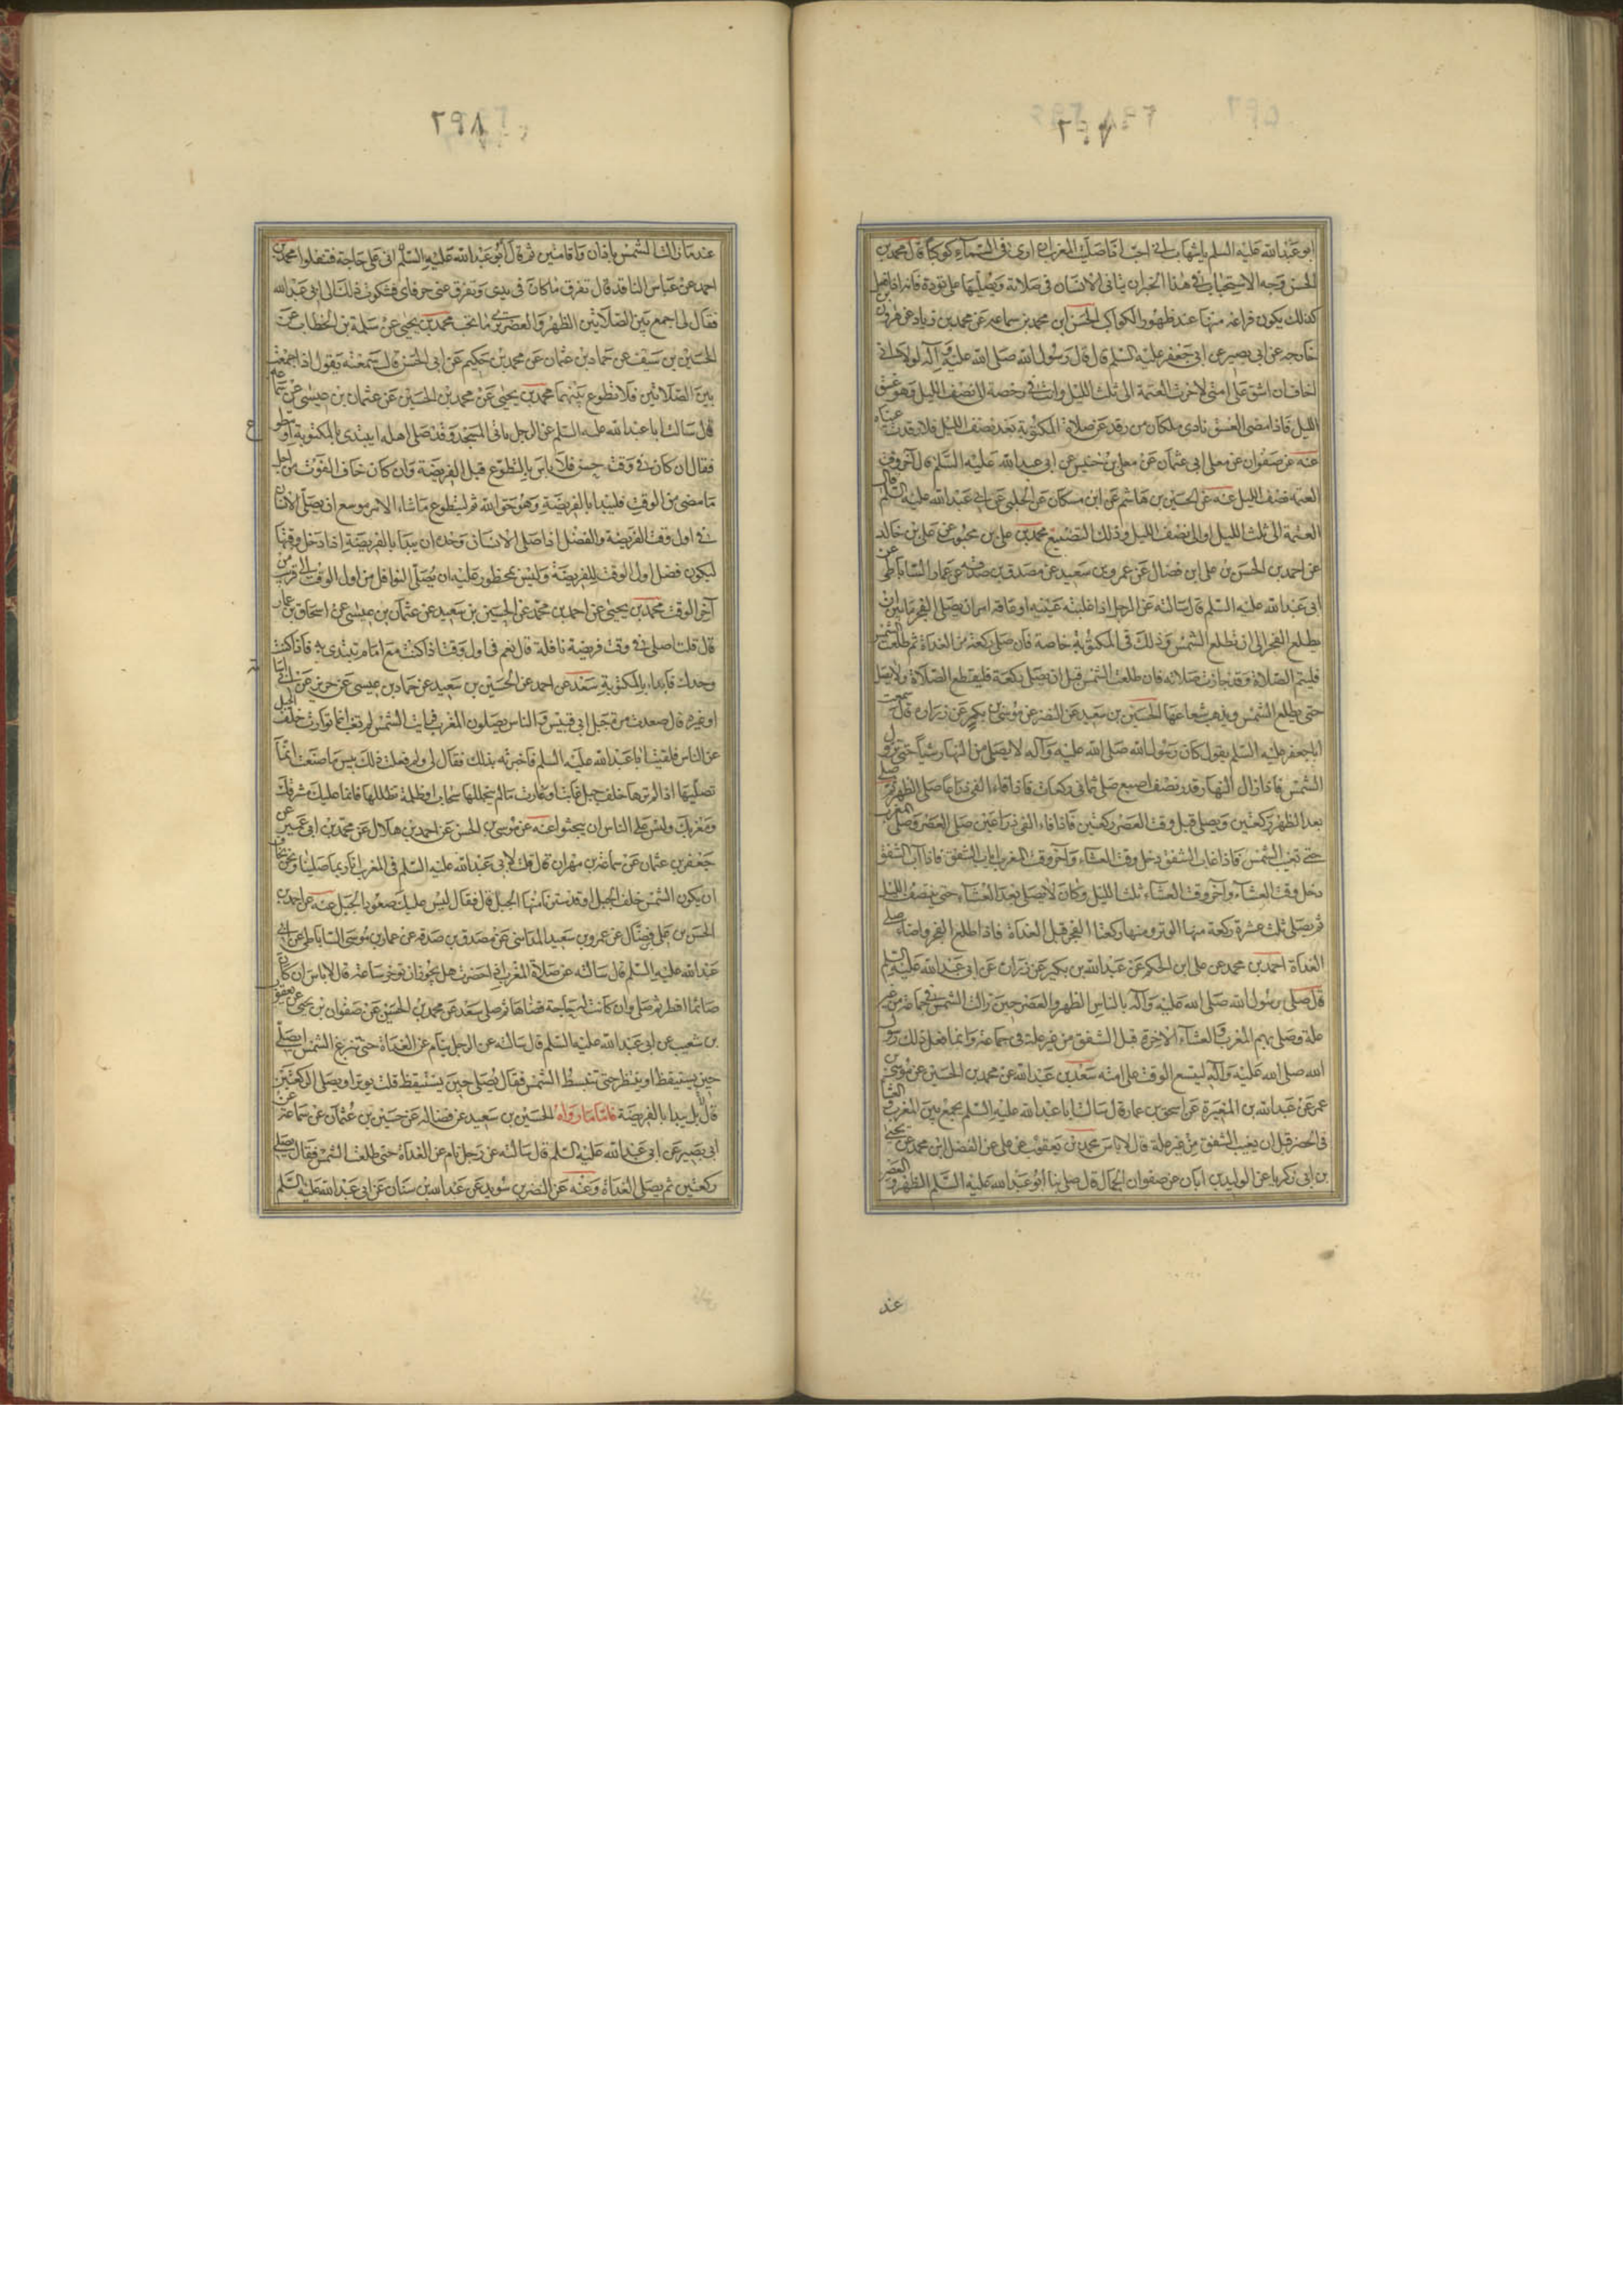 ابو عبدالله عليه السلم يا شهاب اني احب اذا صليت المغرب ان ارى في السمآء كوكبا قال محمد بن
الحسن وجه الاستحباب في هذا الخبر ان يتانى الانسان في صلاته ويصليها على تؤدة فانه اذا فعل
كذلك يكون فراغه منها عند ظهور الكواكب الحسن ابن محمد بن سماعه عن محمد بن زياد عن هرون بن
خارجه عن ابي بصير عن ابي جعفر عليه السلم قال قال رسول الله صلى الله عليه وآله لولا اني
اخاف ان اشق على امتي لاخرت العتمة الى ثلث الليل وانت في رخصة الى نصف الليل وهو غسق
الليل فاذا مضى الغسق نادى ملكان من رقد عن صلاة المكتوبة بعد نصف الليل فلا رقدت عيناه
عنه عن صفوان عن معلى ابي عثمان عن معلى بن خنيس عن ابي عبدالله عليه السلم قال آخر وقت
العتمة نصف الليل عنه عن الحسين بن هاشم عن ابن مسكان عن الحلبي عن ابي عبدالله عليه السلم قال
العتمة الى ثلث الليل او الى نصف الليل وذلك التضييع محمد بن علي بن محبوب عن علي بن خالد
عن احمد بن الحسن بن علي ابن فضال عن عمرو بن سعيد عن مصدق بن صدقه عن عمار الساباطي عن
ابي عبدالله عليه السلم قال سالته عن الرجل اذا غلبته عينيه او عاقه امر ان يصلي الفجر ما بين ان
يطلع الفجر الى ان تطلع الشمس وذلك في المكتوبة خاصة فان صلى ركعة من الغداة ثم طلعت الشمس
فليتم الصلاة وقد جازت صلاته فان طلعت الشمس قبل ان يصلي ركعة فليقطع الصلاة ولا يصل
حتى تطلع الشمس ويذهب شعاعها الحسين بن سعيد عن النضر عن موسى بن بكر عن زراره قال سمعت
ابا جعفر عليه السلم يقول كان رسول الله صلى الله عليه وآله لا يصلي من النهار شيئا حتى تزول
الشمس فاذا زال النهار قدر نصف اصبع صلى ثماني ركعات فاذا فاء الفئ ذراعا صلى الظهر ثم صلى
بعد الظهر ركعتين ويصلي قبل وقت العصر ركعتين فاذا فاء الفئ ذراعين صلى العصر وصلى المغرب
حتى تغيب الشمس فاذا غاب الشفق دخل وقت العشاء وآخر وقت المغرب اياب الشفق فاذا آب الشفق
دخل وقت العشآء وآخر وقت العشآء ثلث الليل وكان لا يصلي بعد العشآء حتى ينتصف الليل
ثم يصلي ثلث عشرة ركعة منها الوتر ومنها ركعتا الفجر قبل الغداة فاذا طلع الفجر واضاء صلى
الغداة احمد بن محمد عن علي ابن الحكم عن عبدالله بن بكير عن زراره عن ابي عبدالله عليه السلم
قال صلى رسول الله صلى الله عليه وآله بالناس الظهر والعصر حين زالت الشمس في جماعة من غير
علة وصلى بهم المغرب والعشآء الآخرة قبل الشفق من غير علة في جماعة وانما فعل ذلك رسول
الله صلى الله عليه وآله ليتسع الوقت على امته سعد بن عبدالله عن محمد بن الحسين عن موسى بن
عمر عن عبدالله بن المغيرة عن اسحق بن عمار قال سالت ابا عبدالله عليه السلم يجمع بين المغرب والعشا
في الحضر قبل ان يغيب الشفق من غير علة قال لا باس محمد بن يعقوب عن علي عن الفضل ابن محمد عن يحيى
بن ابي زكريا عن الوليد بن ابان عن صفوان الجمال قال صلى بنا ابو عبدالله عليه السلم الظهر والعصر
عند
٢٩٨
عند ما زالت الشمس باذان واقامتين ثم قال ابو عبدالله عليه السلم اني على حاجة فتنفلوا محمد بن
احمد عن عباس الناقد قال تفرق ما كان في يدي وتفرق عني حرفاي فشكوت ذلك الى ابي عبدالله
فقال لي اجمع بين الصلاتين الظهر والعصر ترى ما تحب محمد بن يحيى عن سلمة بن الخطاب عن
الحسين بن سيف عن حماد بن عثمان عن محمد بن حكيم عن ابي الحسن قال سمعته يقول اذا جمعت
بين الصلاتين فلا تطوع بينهما محمد بن يحيى عن محمد بن الحسين عن عثمان بن عيسى عن سماعه
قال سالت ابا عبدالله عليه السلم عن الرجل ياتي المسجد وقد صلى اهله ايبتدئ بالمكتوبة او يتطوع
فقال ان كان في وقت حسن فلا باس بالتطوع قبل الفريضة وان كان خاف الفوت من اجل
ما مضى من الوقت فليبدا بالفريضة وهو حق الله ثم ليتطوع ما شاء الامر موسع ان يصلي الانسان
في اول وقت الفريضة والفضل اذا صلى الانسان وحده ان يبدا بالفريضة اذا دخل وقتها
ليكون فضل اول الوقت للفريضة وليس بمحظور عليه ان يصلي النوافل من اول الوقت الى قريب من
آخر الوقت محمد بن يحيى عن احمد بن محمد عن الحسين بن سعيد عن عثمان بن عيسى عن اسحاق بن عمار
قال قلت اصلي في وقت فريضة نافلة قال نعم في اول وقت اذا كنت مع امام تقتدي به فاذا كنت
وحدك فابدا بالمكتوبة سعد عن احمد عن الحسين بن سعيد عن حماد بن عيسى عن حريز عن ابي اسامة
او غيره قال صعدت مرة جبل ابي قبيس والناس يصلون المغرب فرايت الشمس لم تغب انما توارت خلف الجبل
عن الناس فلقيت ابا عبدالله عليه السلم فاخبرته بذلك فقال لي ولم فعلت ذلك بئس ما صنعت انما
تصليها اذا لم ترها خلف جبل غابت او غارت ما لم يتجللها سحاب او ظلمة تظللها فانما عليك مشرقك
ومغربك وليس على الناس ان يبحثوا عنه عن موسى بن الحسن عن احمد بن هلال عن محمد بن ابي عمير عن
جعفر بن عثمان عن سماعة بن مهران قال قلت لابي عبدالله عليه السلم في المغرب انا ربما صلينا ونحن نخاف
ان يكون الشمس خلف الجبل او قد سترنا منها الجبل قال فقال ليس عليك صعود الجبل عنه عن احمد بن
الحسن بن علي فضال عن عمرو بن سعيد المدائني عن مصدق بن صدقه عن عمار بن موسى الساباطي عن ابي
عبدالله عليه السلم قال سالته عن صلاة المغرب اذا حضرت هل يجوز ان تؤخر ساعة قال لا باس ان كان
صائما افطر ثم صلى وان كانت له حاجة قضاها ثم صلى سعد عن محمد بن الحسين عن صفوان بن يحيى عن يعقوب
بن شعيب عن ابي عبدالله عليه السلم قال سالته عن الرجل ينام عن الغداة حتى تبزغ الشمس ايصلي
حين يستيقظ او ينتظر حتى تنبسط الشمس فقال يصلي حين يستيقظ قلت يوتر او يصلي الركعتين
قال بل يبدا بالفريضة فاما ما رواه الحسين بن سعيد عن فضاله عن حسين بن عثمان عن سماعة عن
ابي بصير عن ابي عبدالله عليه السلم قال سالته عن رجل نام عن الغداة حتى طلعت الشمس فقال يصلي
ركعتين ثم يصلي الغداة وعنه عن النضر بن سويد عن عبدالله بن سنان عن ابي عبدالله عليه السلم